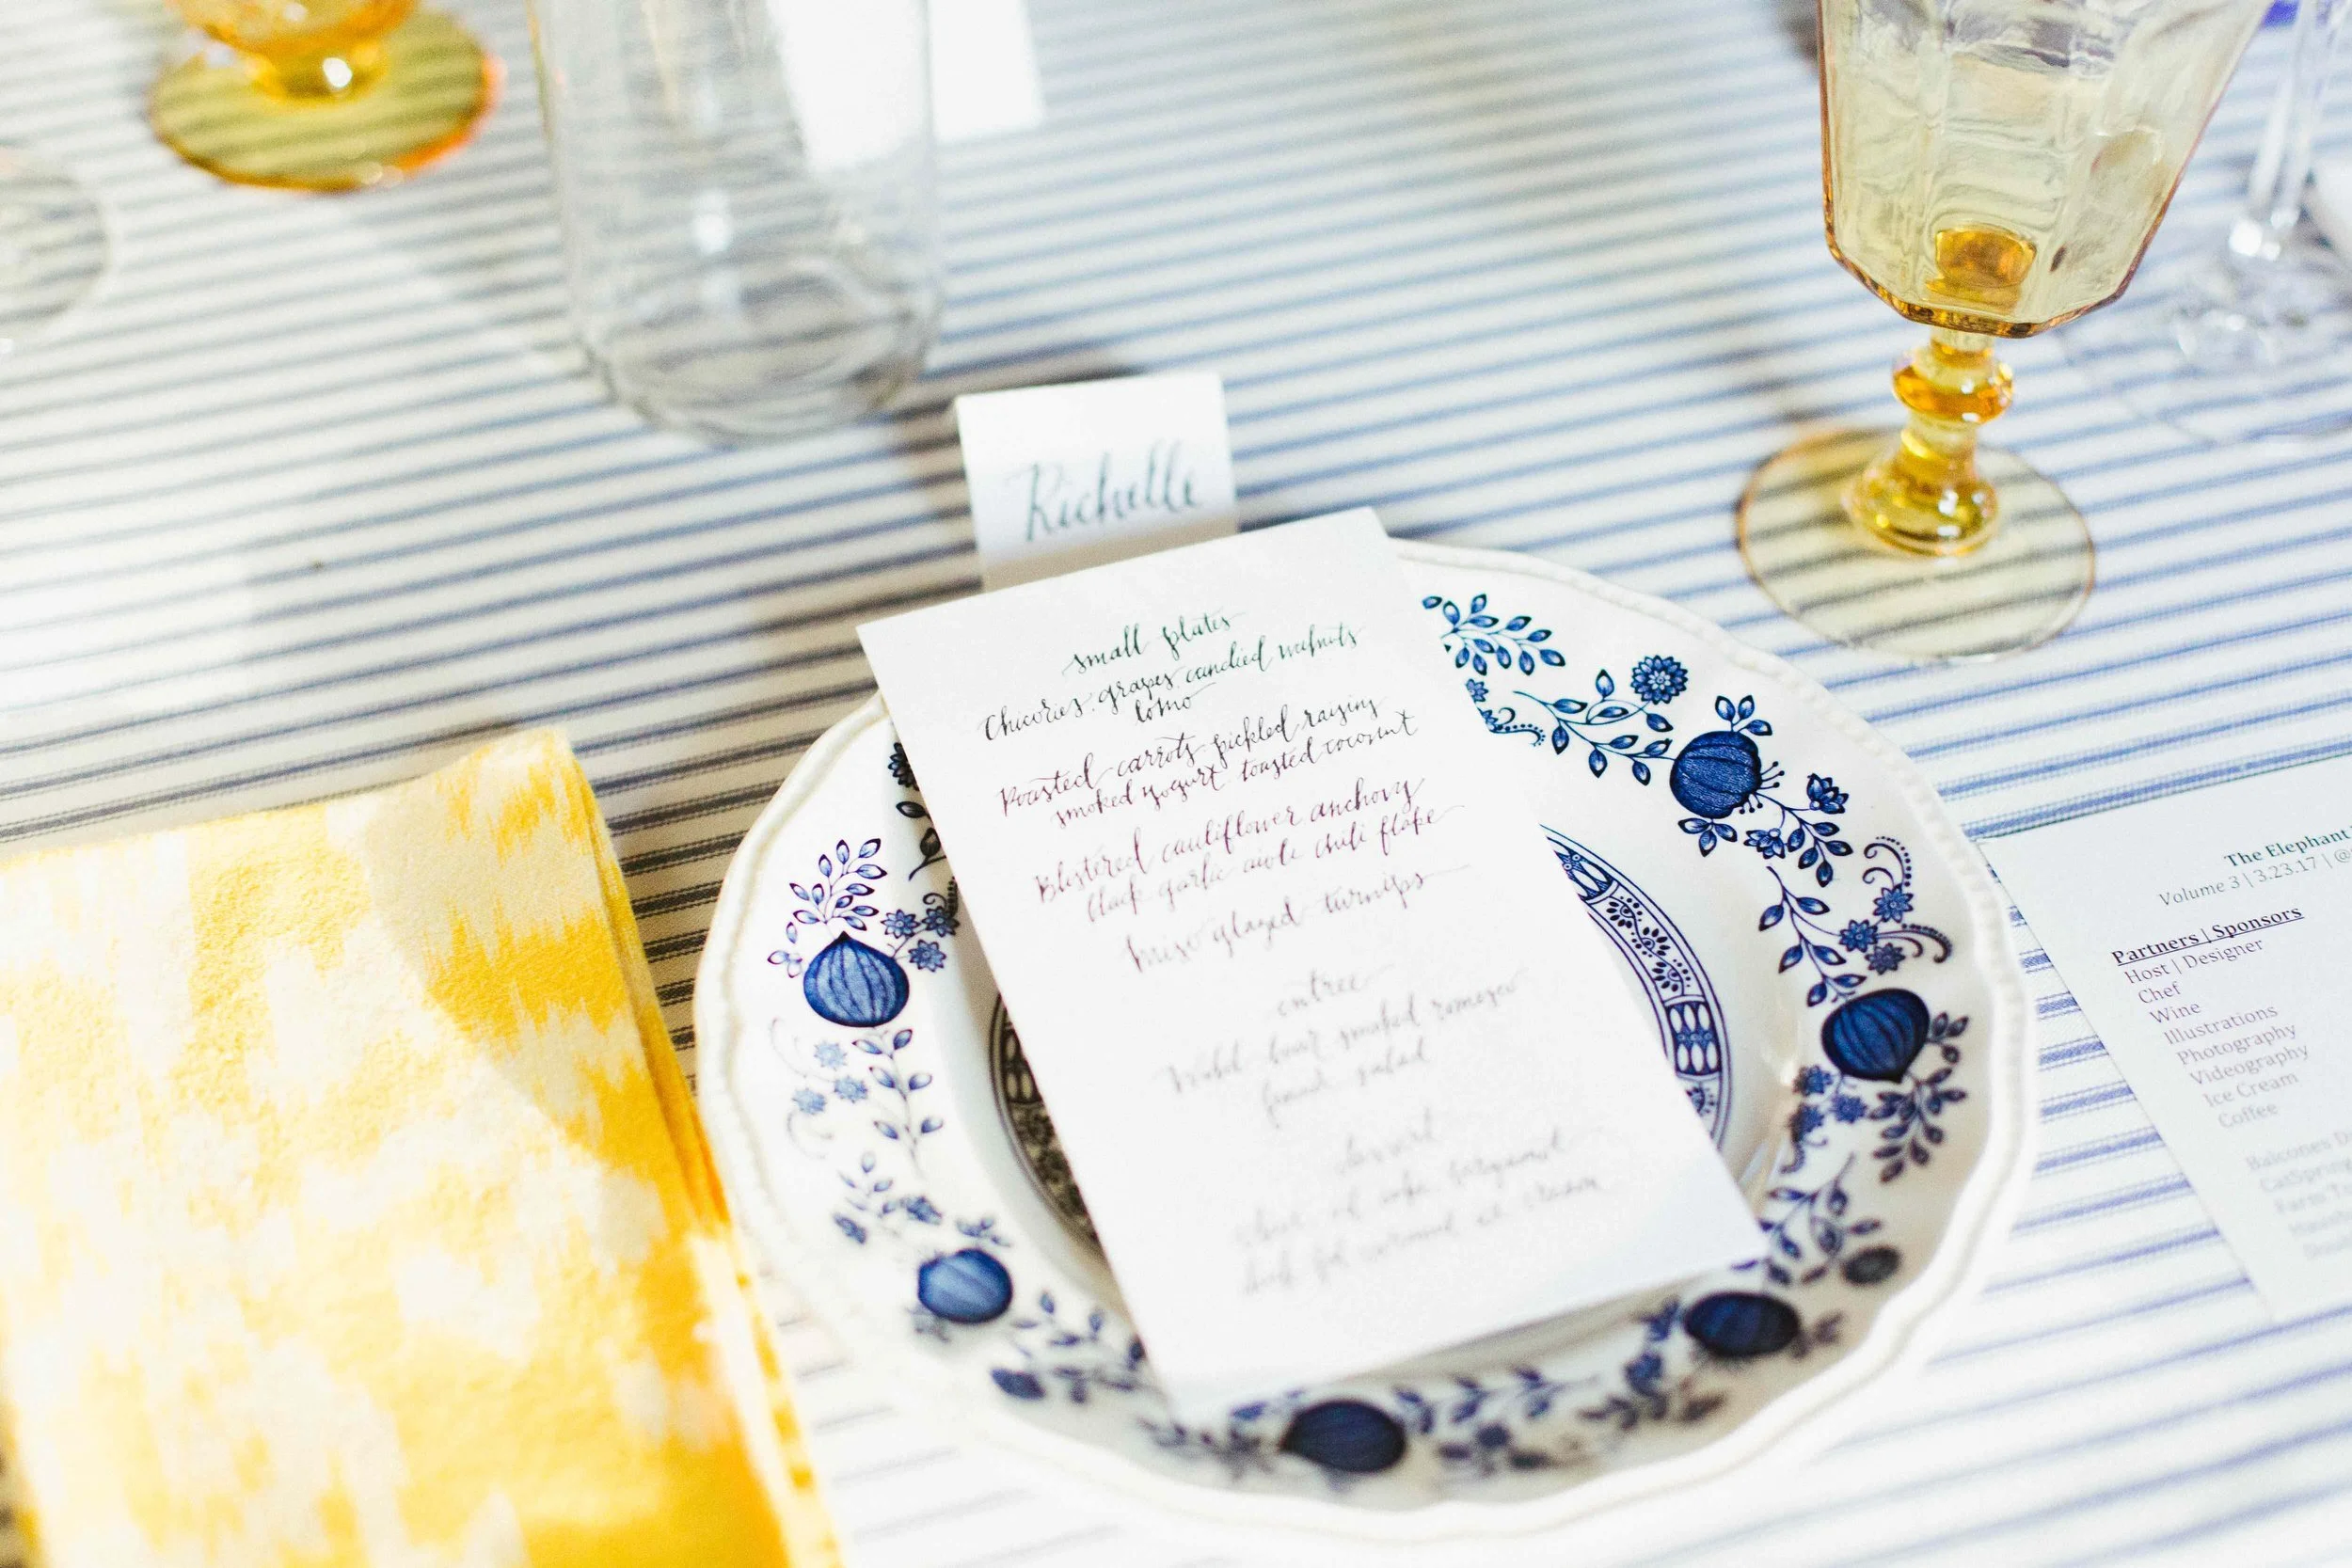 Richelle
small plates
Chicories grapes candied walnuts
lomo
Roasted carrots pickled raisins
smoked yogurt toasted coconut
Blistered cauliflower anchovy
black garlic aioli chili flake
miso glazed turnips
entree
smoked romesco
salad
dessert
bergamot
The Elephant
Volume 3 | 3.23.17 | @
Partners | Sponsors
Host | Designer
Chef
Wine
Illustrations
Photography
Videography
Ice Cream
Coffee
Balcones
CatSpring
Farm